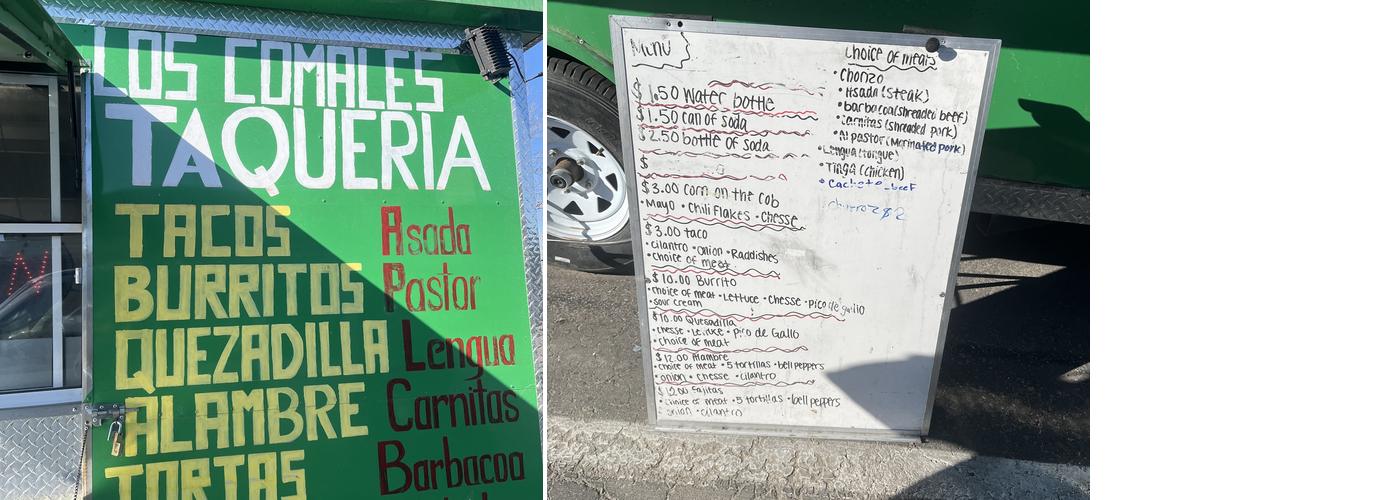 LOS COMALES
TAQUERIA
TACOS
BURRITOS
QUEZADILLA
ALAMBRE
TORTAS
Asada
Pastor
Lengua
Carnitas
Barbacoa
Menu
$1.50 Water bottle
$1.50 can of soda
$2.50 bottle of soda
$
$3.00 corn on the cob
• Mayo • Chili Flakes • Chesse
$3.00 taco
• cilantro • onion • Raddishes
• choice of meat
$10.00 Burrito
• choice of meat • Lettuce • Chesse • pico de gallo
• sour cream
$10.00 Quesadilla
• chesse • Lettuce • pico de Gallo
• choice of meat
$12.00 Alambre
• choice of meat • 5 tortillas • bell peppers
• onion • chesse • cilantro
$12.00 Fajitas
• choice of meat • 5 tortillas • bell peppers
• onion • cilantro
Choice of meats
• Chorizo
• Asada (steak)
• barbacoa (shreaded beef)
• carnitas (shreaded pork)
• Al pastor (Marinated pork)
• Lengua (tongue)
• Tinga (chicken)
• Cachete beef
churroz $2